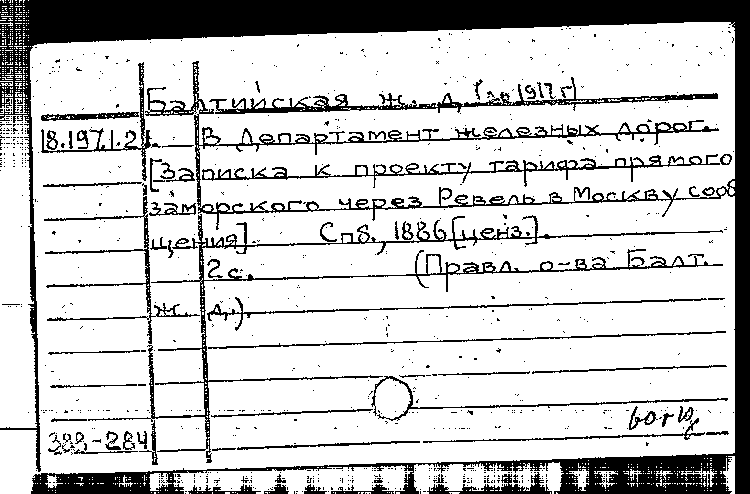 Балтийская ж. д. (до 1917 г)
18.197.1.21. В Департамент железных дорог.
[Записка к проекту тарифа прямого
заморского через Ревель в Москву сооб
щения]. Спб., 1886 [ценз.].
2 с. (Правл. о-ва Балт.
ж. д.).
388-284